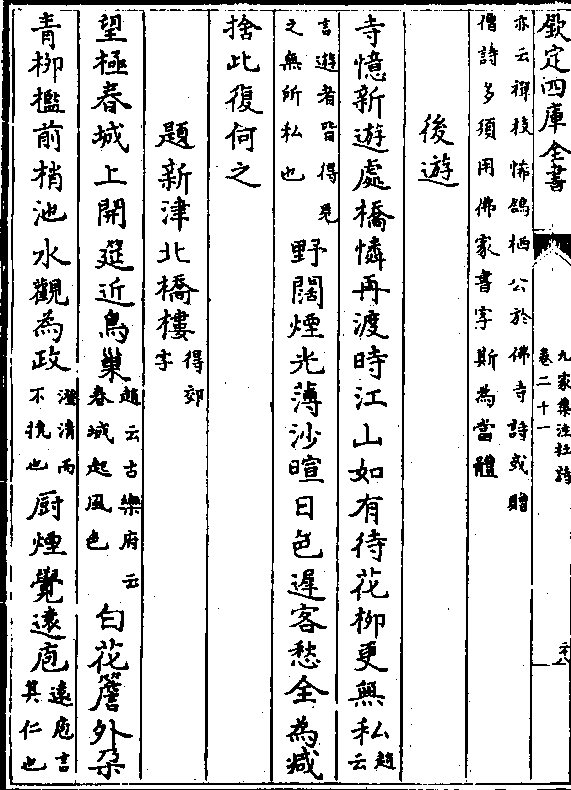 欽定四庫全書
九家集注杜詩
卷二十一
亦云禪枝怖鴿栖公於佛寺詩或贈
僧詩多須用佛家書字斯為當體
後遊
寺憶新遊處橋憐再渡時江山如有待花柳更無私趙云
言遊者皆得見
之無所私也
野闊煙光薄沙暄日色遲客愁全為減
捨此復何之
題新津北橋樓得郊字
望極春城上開筵近鳥巢
趙云古樂府云
春城起風色
白花簷外朶
青柳檻前梢池水觀為政
澄清而
不撓也
厨煙覺遠庖
遠庖言
其仁也